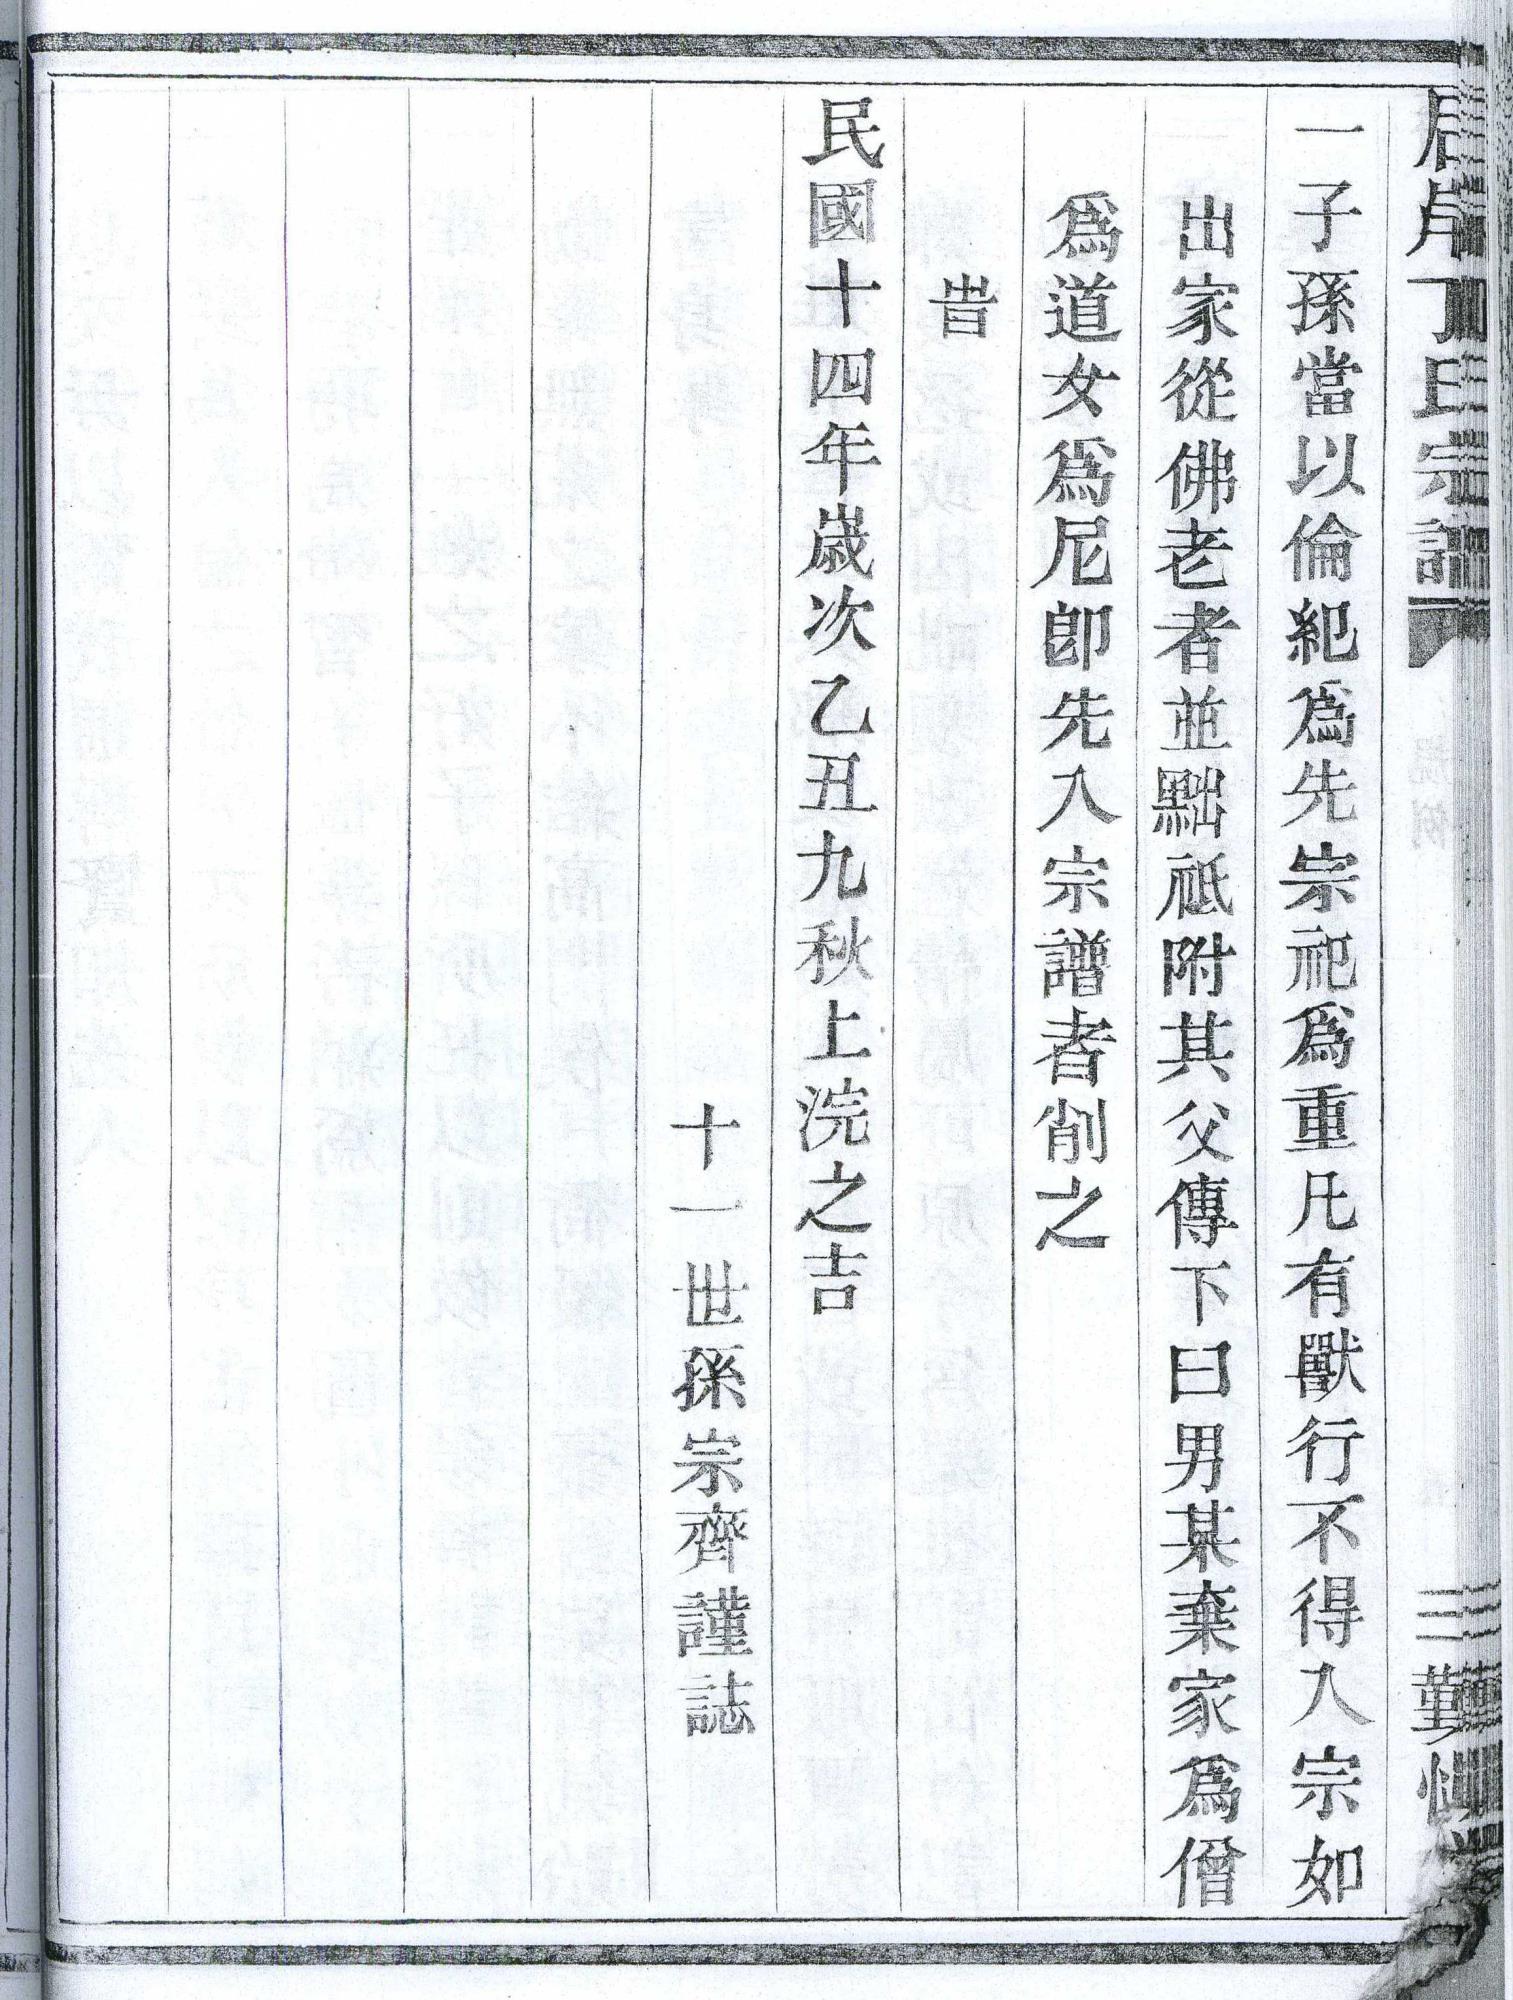 丁氏宗譜
三
一子孫當以倫紀爲先宗祀爲重凡有獸行不得入宗如
出家從佛老者並黜祗附其父傳下曰男某棄家爲僧
爲道女爲尼卽先入宗譜者削之
旹
民國十四年歲次乙丑九秋上浣之吉
十一世孫宗齊謹誌